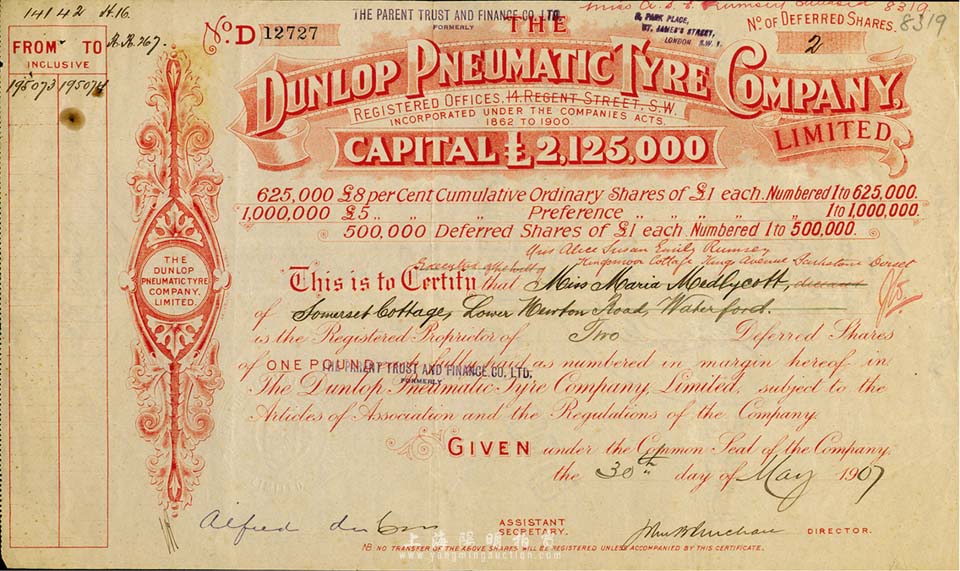 14142 A.16.
THE PARENT TRUST AND FINANCE CO. LTD.
FORMERLY
Miss A. S. E. Rumsey 8319
8, PARK PLACE,
ST. JAMES'S STREET,
LONDON S.W.1.
8319
FROM TO
INCLUSIVE
195073 195074
No. D 12727
No. OF DEFERRED SHARES.
2
THE
DUNLOP PNEUMATIC TYRE COMPANY,
LIMITED
REGISTERED OFFICES, 14, REGENT STREET, S.W.
INCORPORATED UNDER THE COMPANIES ACTS.
1862 TO 1900
CAPITAL £2,125,000
625,000 £8 per Cent Cumulative Ordinary Shares of £1 each. Numbered 1 to 625,000.
1,000,000 £5 „ „ „ Preference „ „ „ „ „ 1 to 1,000,000.
500,000 Deferred Shares of £1 each Numbered 1 to 500,000.
Miss Alice Susan Emily Rumsey
Kingsmoor Cottage Kings Avenue Parkstone Dorset
Executrix of the will of
This is to Certify that Miss Maria Medlycott,
of Somerset Cottage, Lower Newton Road, Waterford.
is the Registered Proprietor of Two Deferred Shares
of ONE POUND each fully paid as numbered in margin hereof in
THE PARENT TRUST AND FINANCE CO. LTD.
FORMERLY
The Dunlop Pneumatic Tyre Company, Limited, subject to the
Articles of Association and the Regulations of the Company.
GIVEN under the Common Seal of the Company,
the 30th day of May 1907
THE
DUNLOP
PNEUMATIC TYRE
COMPANY,
LIMITED.
Alfred
ASSISTANT
SECRETARY.
DIRECTOR.
NB. NO TRANSFER OF THE ABOVE SHARES WILL BE REGISTERED UNLESS ACCOMPANIED BY THIS CERTIFICATE.
上海陽明拍賣
www.yangmingauction.com